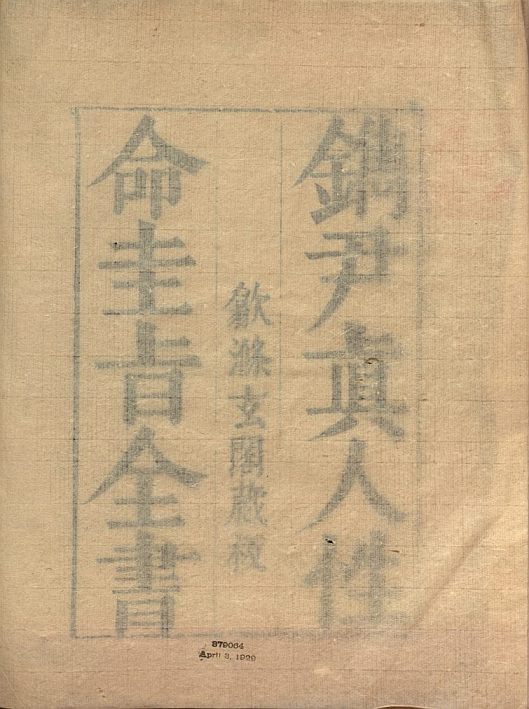 鐫尹眞人性
歙滌玄閣藏板
命圭㫖全書
879064
April 3, 1929